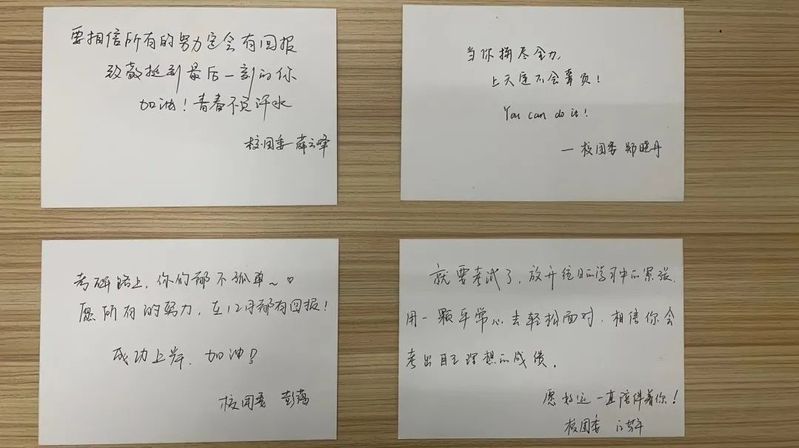 要相信所有的努力定会有回报
致敬挺到最后一刻的你
加油！青春不负汗水
校团委 薛云峰
当你拼尽全力，
上天定不会辜负！
You can do it!
—校团委 郑晓丹
考研路上，你的都不孤单～
愿所有的努力，在12月都有回报！
成功上岸，加油！
校团委 彭薇
就要考试了，放开往日的学习中的紧张，
用一颗平常心去轻松面对，相信你会
考出自己理想的成绩。
愿永远一直陪伴着你！
校团委